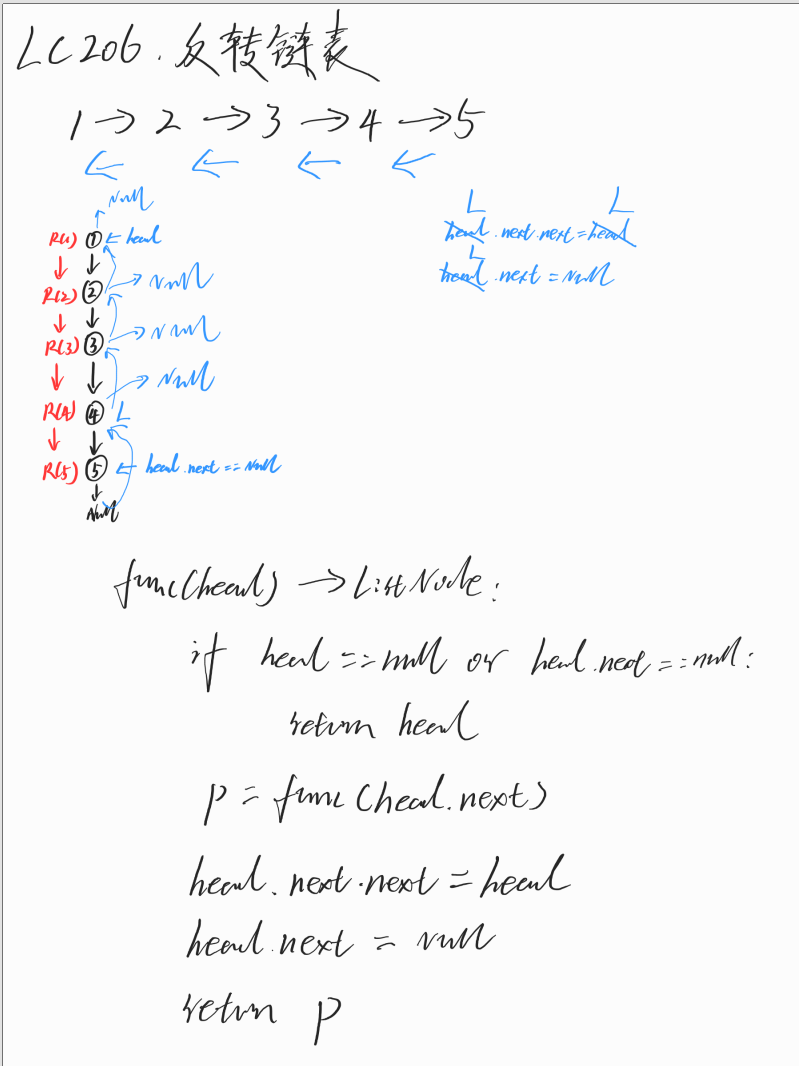 LC206.反转链表
1 → 2 → 3 → 4 → 5
← ← ← ←
Null
R(1) ① ← head
R(2) ② → Null
R(3) ③ → Null
→ Null
R(4) ④ L
R(5) ⑤ ← head.next == Null
Null
L L
head.next.next = head
L
head.next = Null
func(head) → ListNode:
if head == null or head.next == null:
return head
p = func(head.next)
head.next.next = head
head.next = Null
return p